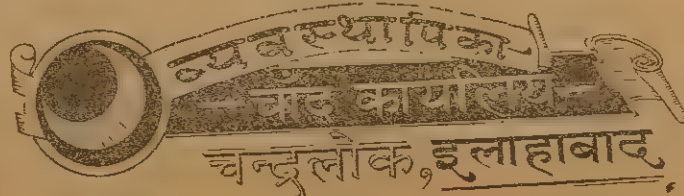 व्यवस्थापिका
चाँद कार्यालय
चन्द्रलोक, इलाहाबाद